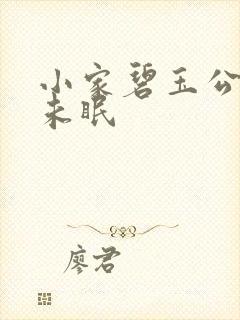 小家碧玉公
未眠
廖君